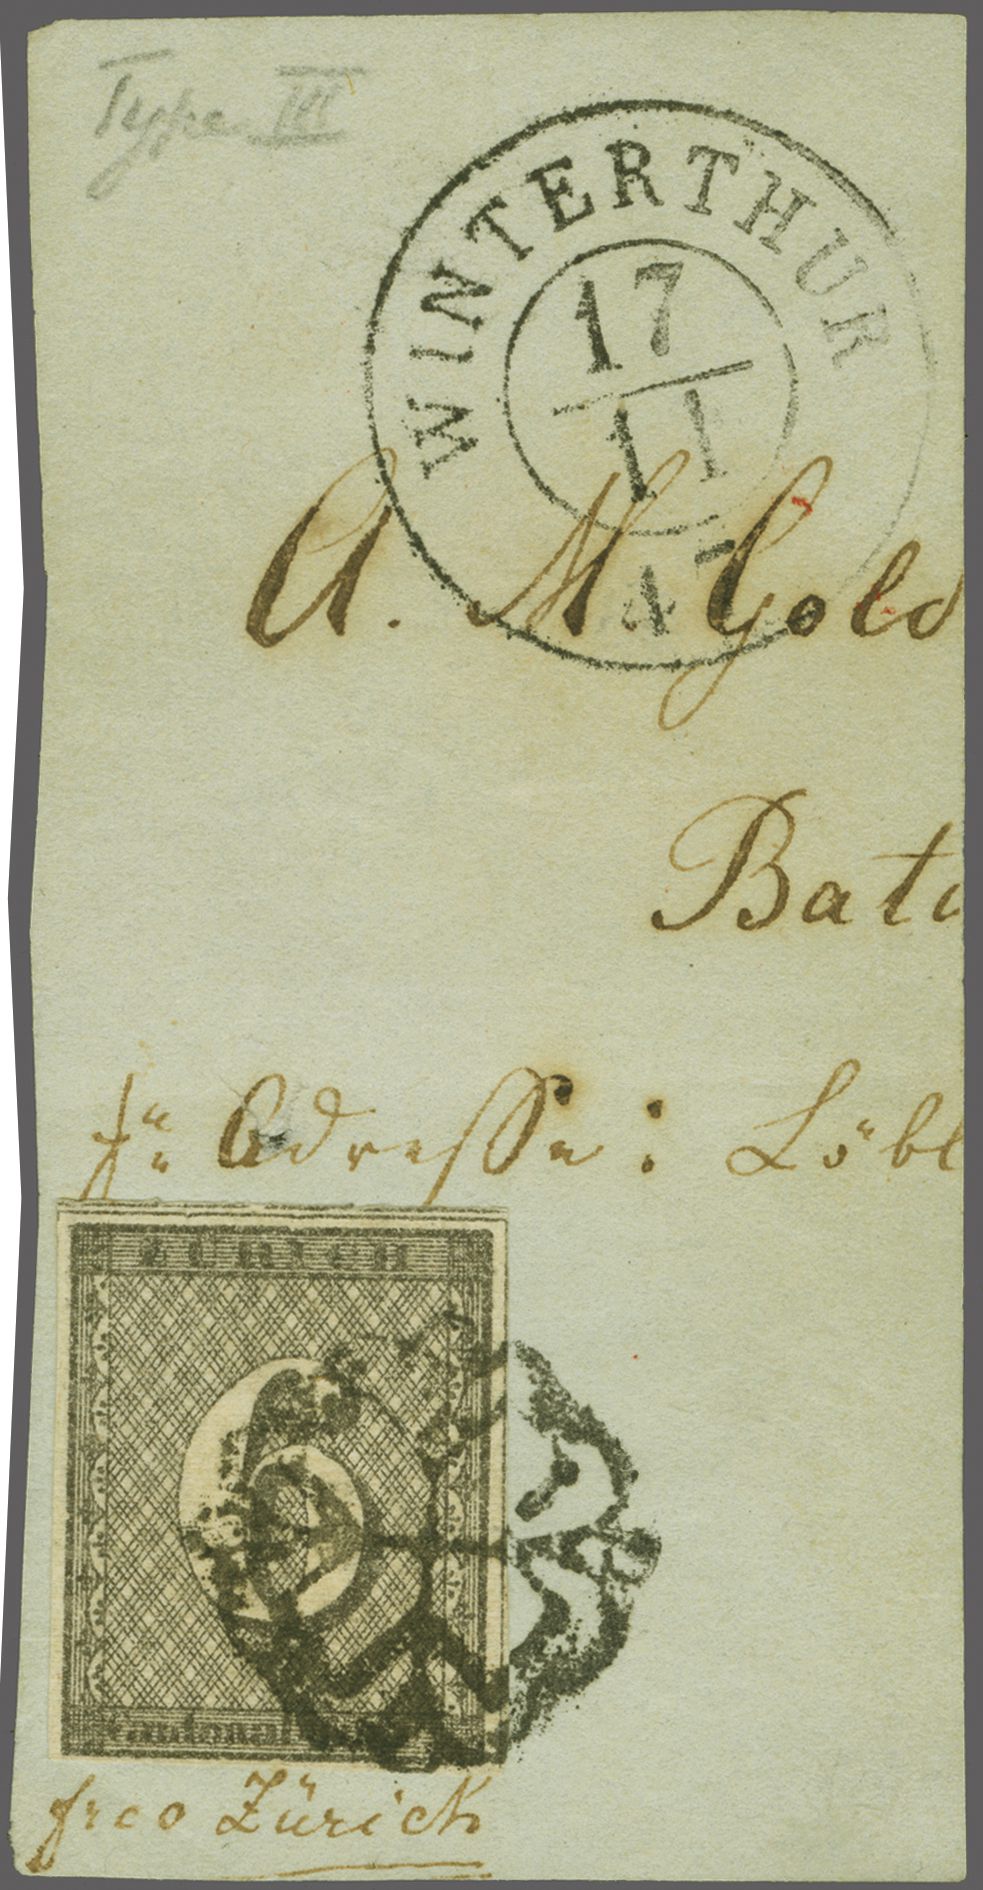 Type III
WINTERTHUR
17
11
47
A. M Gold
Bat
Adresse: Löbl
ZÜRICH
Cantonal
frco Zürich